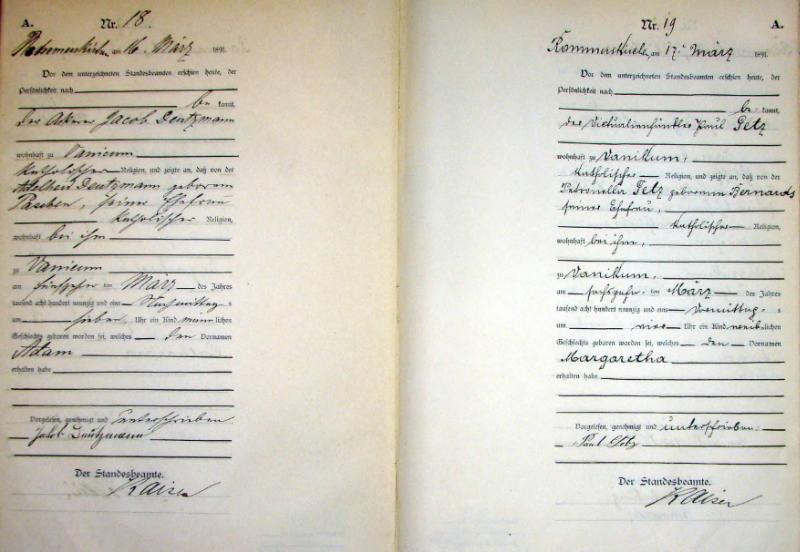 A. Nr. 18.
Rommerskirchen am 16. März 1891.
Vor dem unterzeichneten Standesbeamten erschien heute, der
Persönlichkeit nach
be kannt,
der Ackerer Jacob Deutzmann
wohnhaft zu Vanicum
katholischer Religion, und zeigte an, daß von der
Adelheid Deutzmann geborenen
Paschen, seiner Ehefrau
katholischer Religion,
wohnhaft bei ihm
zu Vanicum
am fünfzehn ten März des Jahres
tausend acht hundert neunzig und eins Nachmittags
um sieben Uhr ein Kind männlichen
Geschlechts geboren worden sei, welches den Vornamen
Adam
erhalten habe
Vorgelesen, genehmigt und unterschrieben
Jakob Deutzmann
Der Standesbeamte.
Kaiser
Nr. 19 A.
Rommerskirchen am 17. März 1891.
Vor dem unterzeichneten Standesbeamten erschien heute, der
Persönlichkeit nach
be kannt,
der Victualienhändler Paul Fetz
wohnhaft zu Vanikum,
katholischer Religion, und zeigte an, daß von der
Petronella Fetz geborenen Bernards
seiner Ehefrau,
katholischer Religion,
wohnhaft bei ihm,
zu Vanikum,
am sechszehn ten März des Jahres
tausend acht hundert neunzig und eins Vormittags
um vier Uhr ein Kind weiblichen
Geschlechts geboren worden sei, welches den Vornamen
Margaretha
erhalten habe
Vorgelesen, genehmigt und unterschrieben.
Paul
Der Standesbeamte.
Kaiser